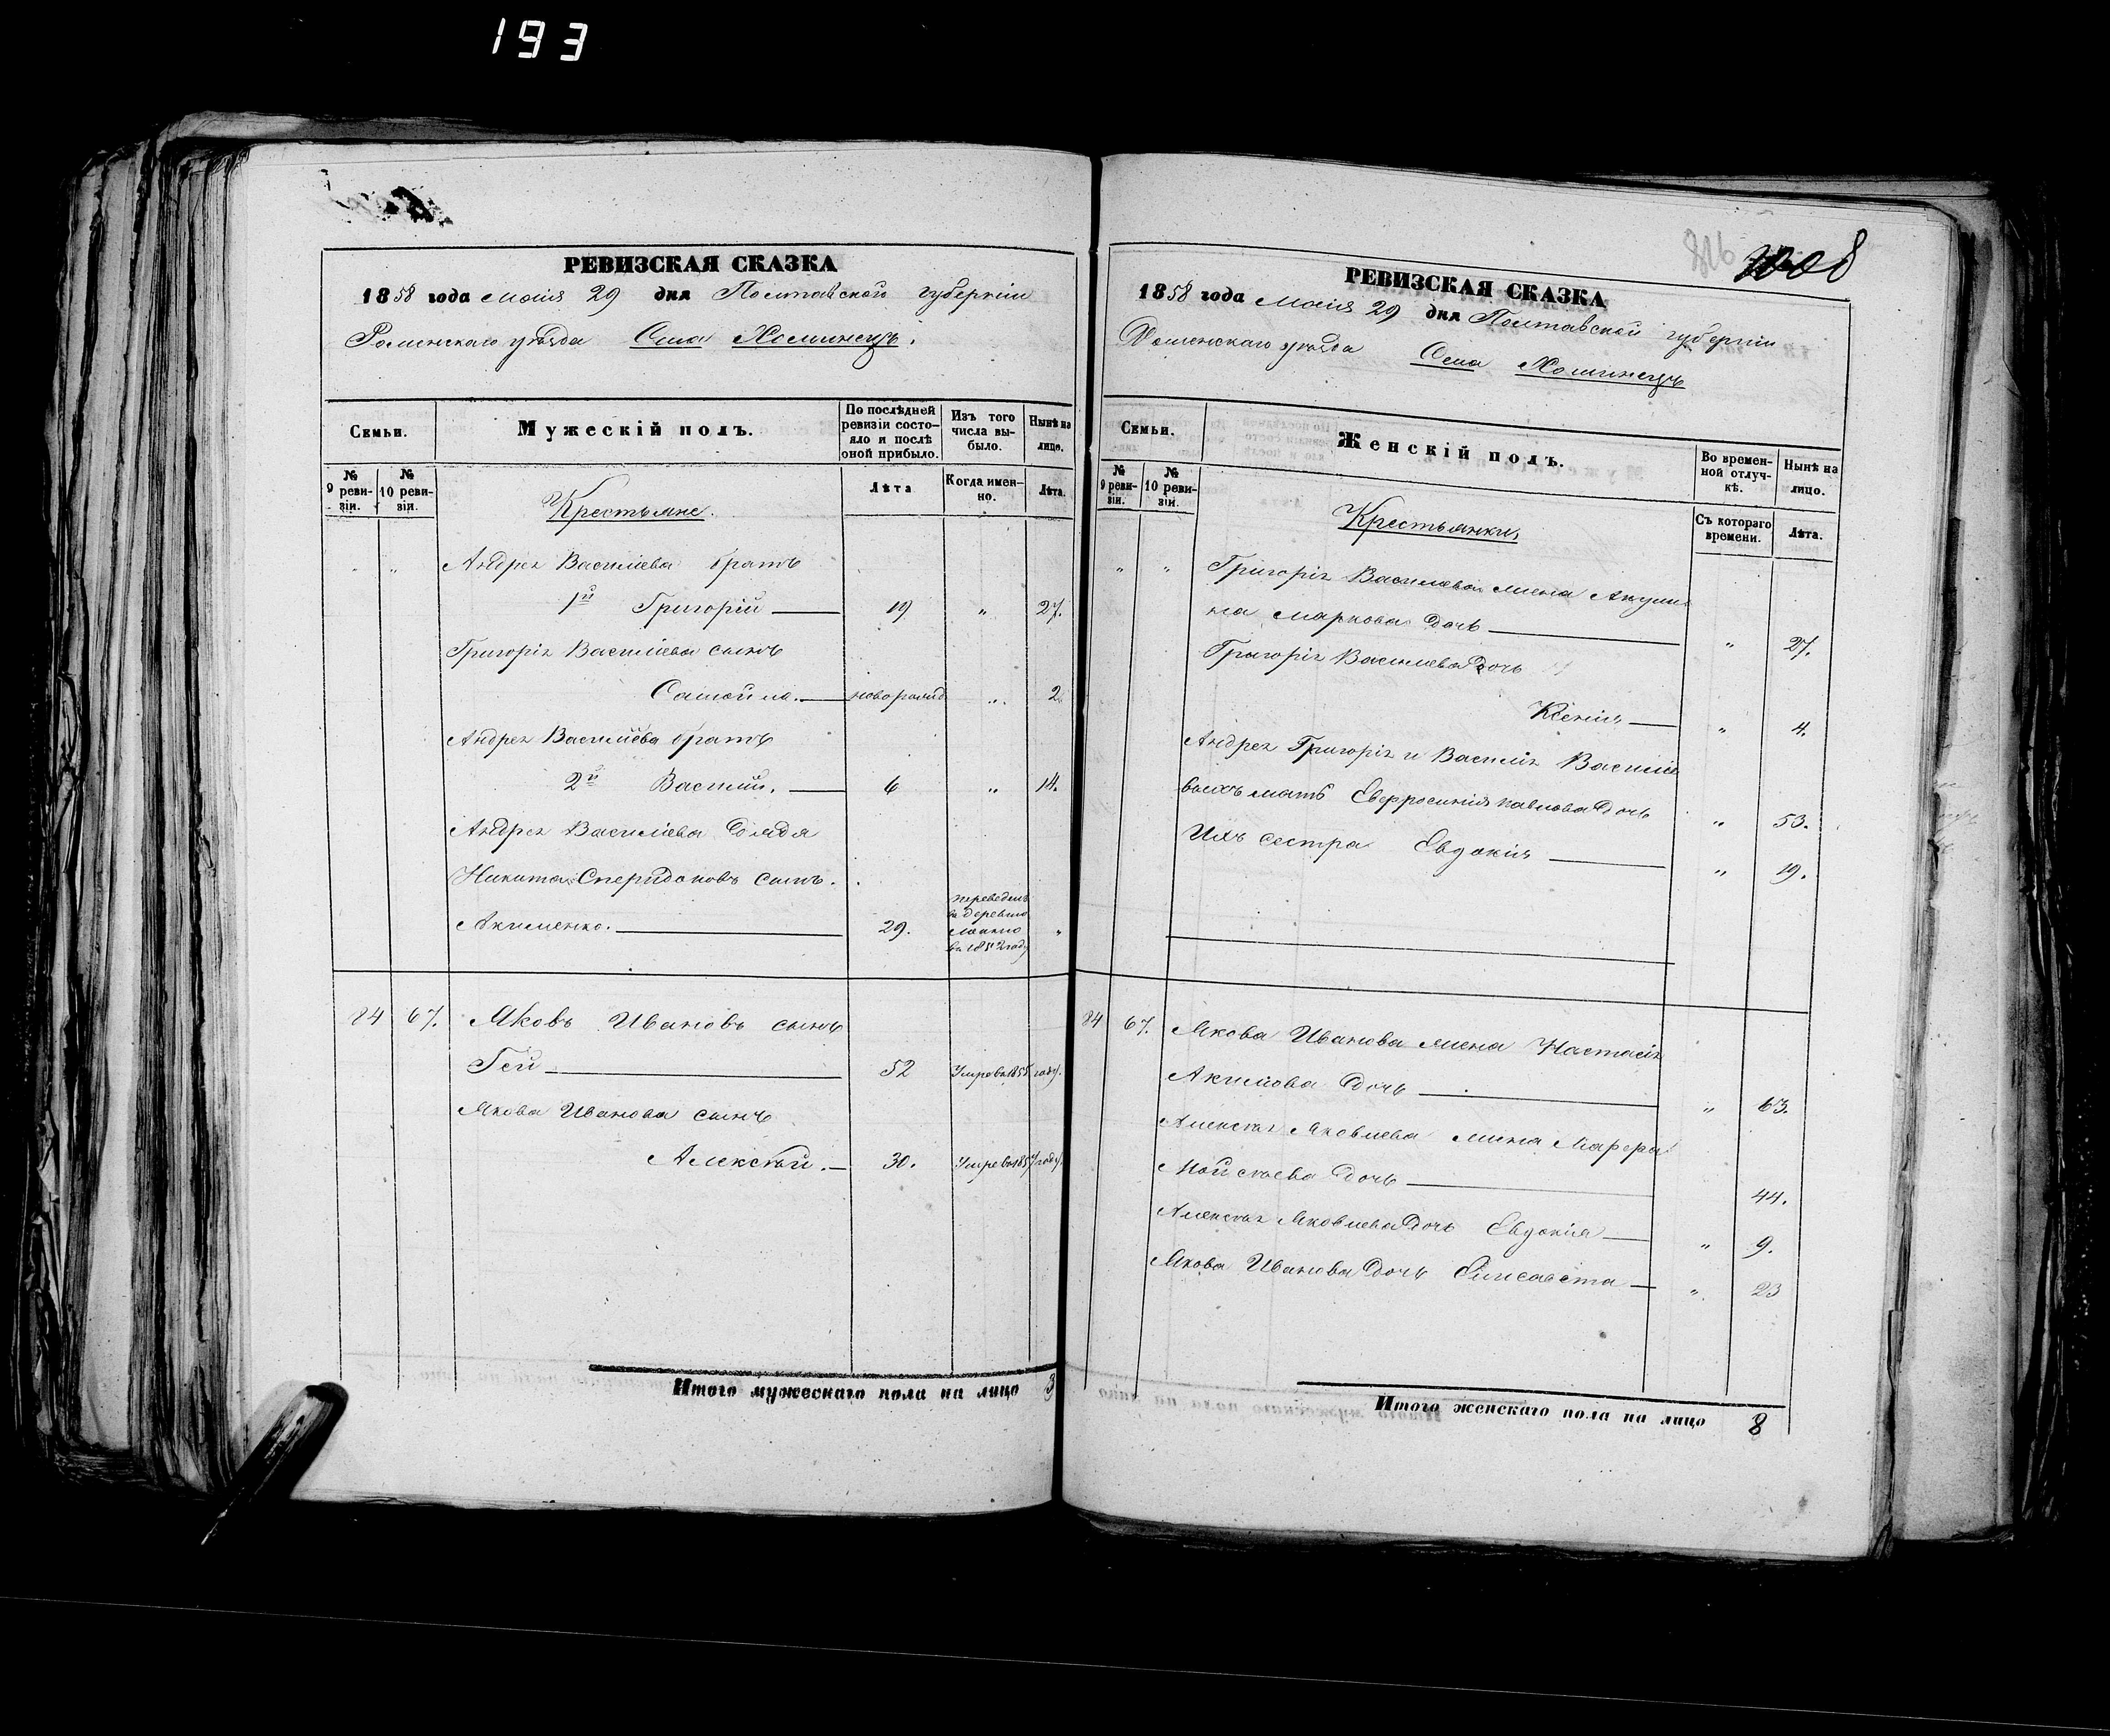 193
РЕВИЗСКАЯ СКАЗКА
1858 года маія 29 дня Полтавской губерніи
Роменскаго уѣзда Села Хоминецъ.
Семьи.
Мужескій полъ.
По послѣдней ревизіи состояло и послѣ оной прибыло.
Изъ того числа выбыло.
Нынѣ на лицо.
№ 9 ревизіи.
№ 10 ревизіи.
Крестьяне.
Лѣта
Когда именно.
Лѣта.
" Андрея Васильева братъ
1й Григорій 19 " 27.
Григорія Васильева сынъ
Самойла. новорожд " 2
Андрея Васильева братъ
2й Василій. 6 " 14.
Андрея Васильева дядя
Никита Спиридоновъ сынъ.
Акименко. 29. переведенъ въ деревню в 1852 году "
84 67. Яковъ Ивановъ сынъ
Гей 52 Умре въ 1855 году.
Якова Иванова сынъ
Алексѣй. 30. Умре въ 1857 году.
Итого мужескаго пола на лицо 3
816 1008
РЕВИЗСКАЯ СКАЗКА
1858 года маія 29 дня Полтавской губерніи
Роменскаго уѣзда Села Хоминецъ
Семьи.
Женскій полъ.
Во временной отлучкѣ.
Нынѣ на лицо.
№ 9 ревизіи.
№ 10 ревизіи.
Крестьянки,
Съ котораго времени.
Лѣта.
" " Григорія Васильева жена Акули
на Маркова дочь " 27.
Григорія Васильева дочь
Ксенія " 4.
Андрея Григорія и Василія Василіе
выхъ мать Евфросинія Павлова дочь " 53.
Ихъ сестра Евдокія " 19.
84 67. Якова Иванова жена Настасія
Акимова дочь " 63.
Алексѣя Яковлева жена Марфа
Мойсѣева дочь 44.
Алексѣя Яковлева дочь Евдокія " 9.
Якова Иванова дочь Елисавета " 23
Итого женскаго пола на лицо 8